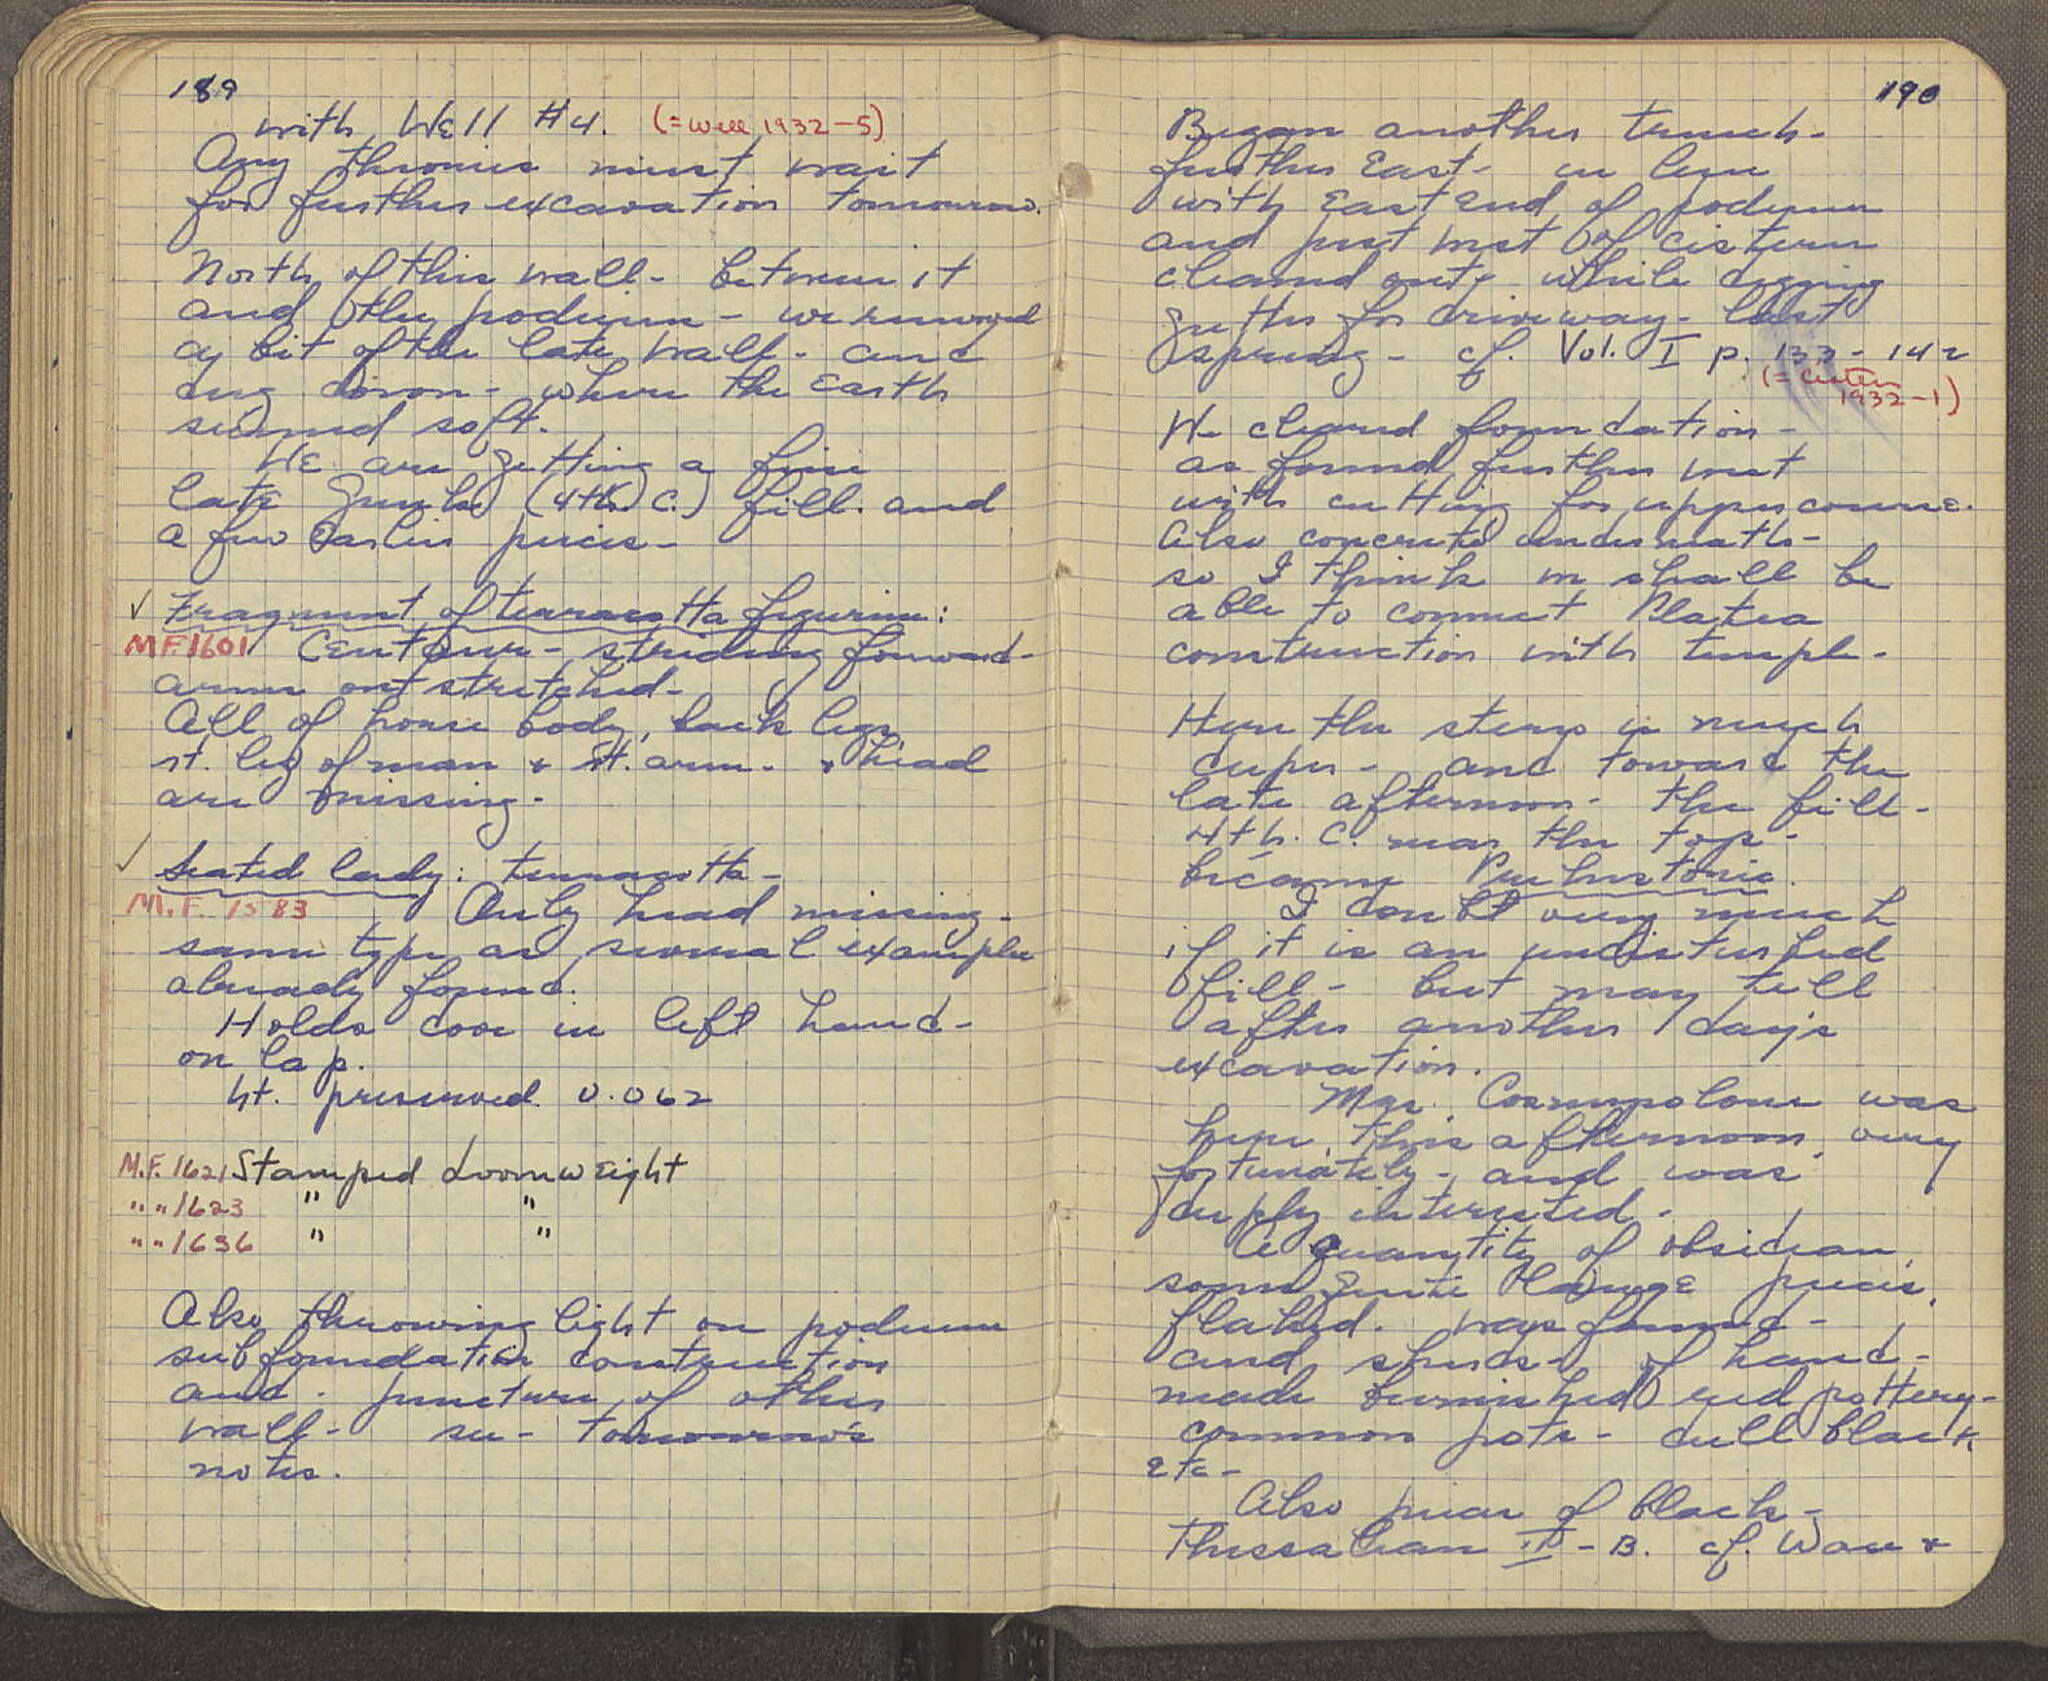 189
with Well #4. (= Well 1932-5)
Any theories must wait
for further excavation tomorrow.
North of this wall - between it
and the podium - we removed
a bit of the late wall - and
dug down - where the earth
seemed soft.
We are getting a fine
late Greek (4th C.) fill. and
a few earlier pieces -
✓ Fragment of terracotta figurine:
MF.1601 Centaur - striding forward -
arms outstretched -
All of horse body, back legs,
rt. leg of man & rt. arm - & head
are missing -
✓ Seated lady: terracotta -
M.F. 1583 Only head missing -
same type as several examples
already found.
Holds dove in left hand -
on lap.
ht. preserved 0.062
M.F. 1621 Stamped Loomweight
" " 1623 " "
" " 1636 " "
Also throwing light on podium
subfoundation construction
and juncture of other
wall - see - tomorrow's
notes.
190
Began another trench -
further East - in line
with East end of podium
and just west of cistern
cleaned out while digging
for driveway - last
spring - cf. Vol. I p. 133-142
(= cistern
1932-1)
We cleared foundation -
as found further west
with cutting for upper course.
Also concrete underneath -
so I think we shall be
able to connect Platea
construction with temple -
Here the stereo is much
deeper - and toward the
late afternoon - the fill -
4th. C. near the top -
became Prehistoric.
I doubt very much
if it is an undisturbed
fill - but may tell
after another day's
excavation.
Mr. was
here this afternoon, very
fortunately - and was
deeply interested -
A quantity of obsidian,
some quite large pieces,
flaked. was found -
and sherds of hand-
made burnished red pottery -
common pots - dull black
etc -
Also piece of black -
Thessalian - B. cf. Wace &